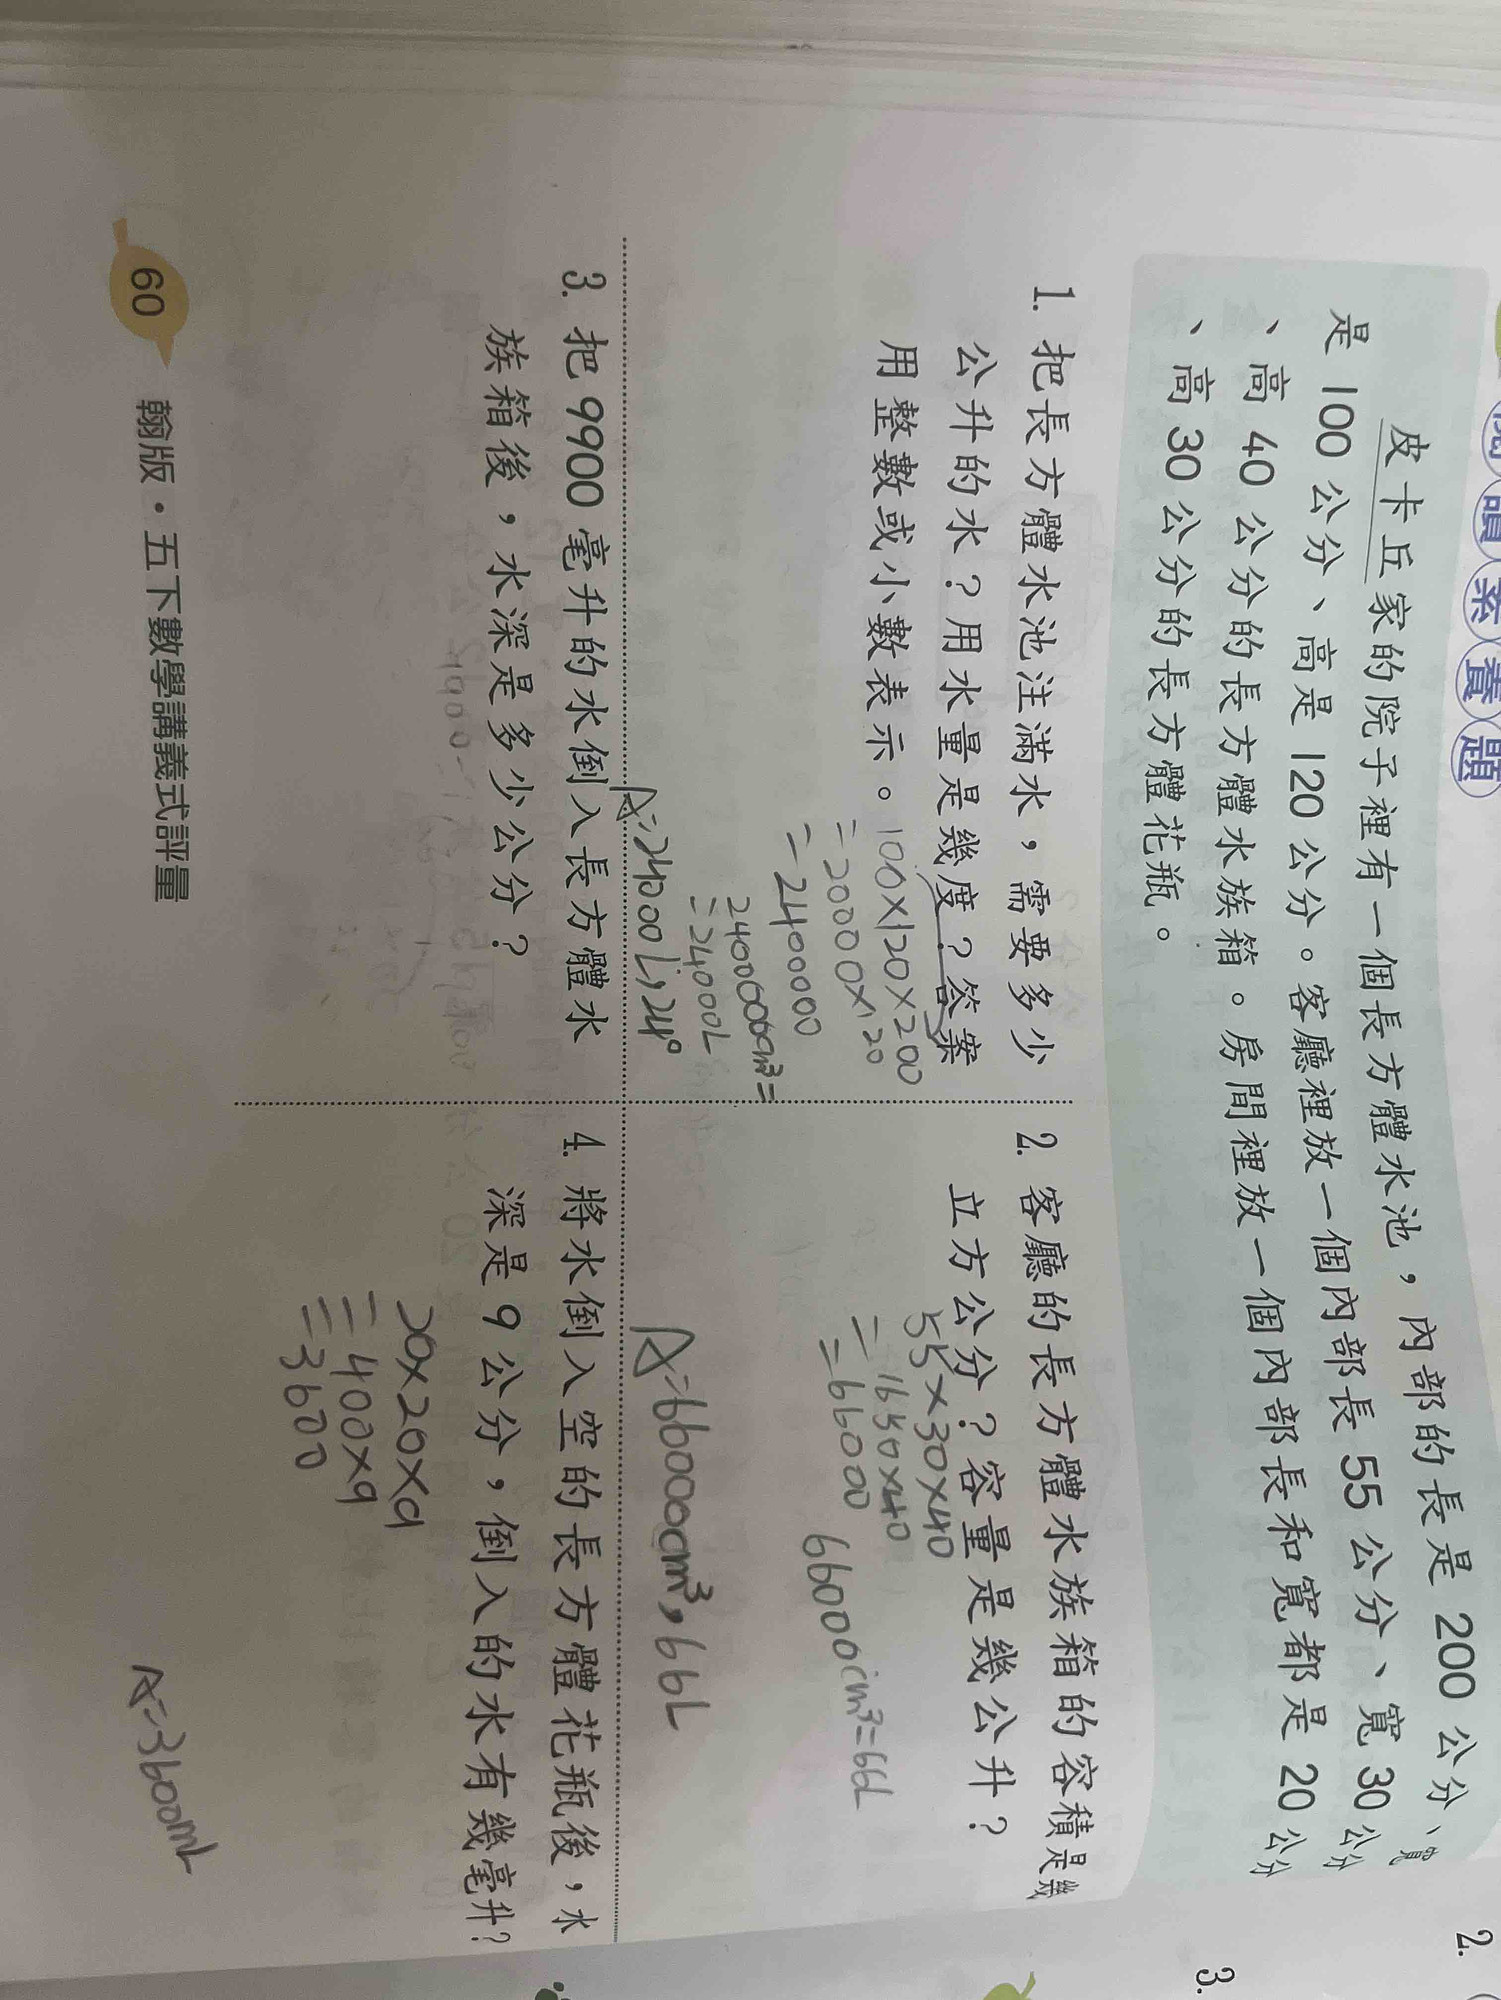 閱讀素養題
皮卡丘家的院子裡有一個長方體水池，內部的長是 200 公分、寬
是 100 公分、高是 120 公分。客廳裡放一個內部長 55 公分、寬 30 公分
、高 40 公分的長方體水族箱。房間裡放一個內部長和寬都是 20 公分
、高 30 公分的長方體花瓶。
1. 把長方體水池注滿水，需要多少
公升的水？用水量是幾度？答案
用整數或小數表示。
100×120×200
=20000×120
=2400000
2400000cm³=
=24000L
A:24000L,24°
2. 客廳的長方體水族箱的容積是幾
立方公分？容量是幾公升？
55×30×40
=1650×40
=66000
66000cm³=66L
A:66000cm³,66L
3. 把 9900 毫升的水倒入長方體水
族箱後，水深是多少公分？
4. 將水倒入空的長方體花瓶後，水
深是 9 公分，倒入的水有幾毫升？
20×20×9
=400×9
=3600
A:3600mL
60 翰版·五下數學講義式評量
2.
3.